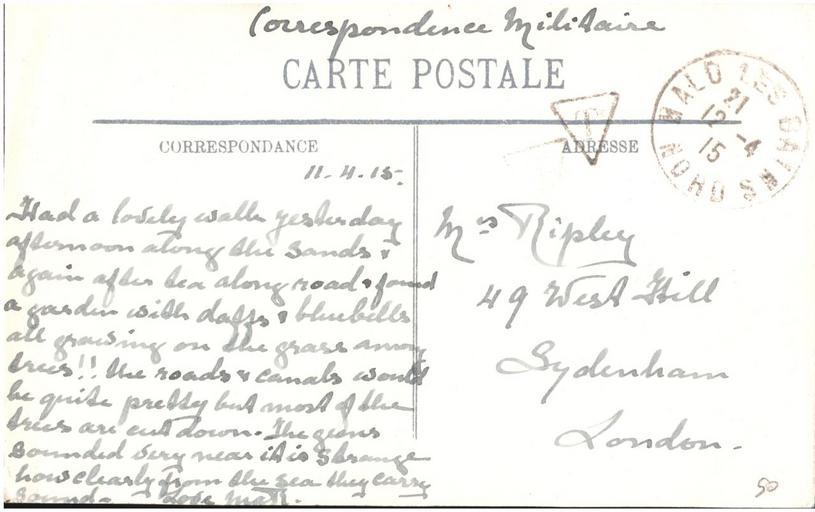 Correspondence Militaire
CARTE POSTALE
MALO LES BAINS
21
12 -4
15
NORD
T
CORRESPONDANCE
ADRESSE
11.4.15.
Had a lovely walk yesterday
afternoon along the sands &
again after tea along road & found
a garden with daffs & bluebells
all growing on the grass among
trees!! The roads & canals would
be quite pretty but most of the
trees are cut down. The guns
sounded very near it is strange
how clearly from the sea they carry
sound. Love
Mrs Ripley
49 West Hill
Sydenham
London.
50